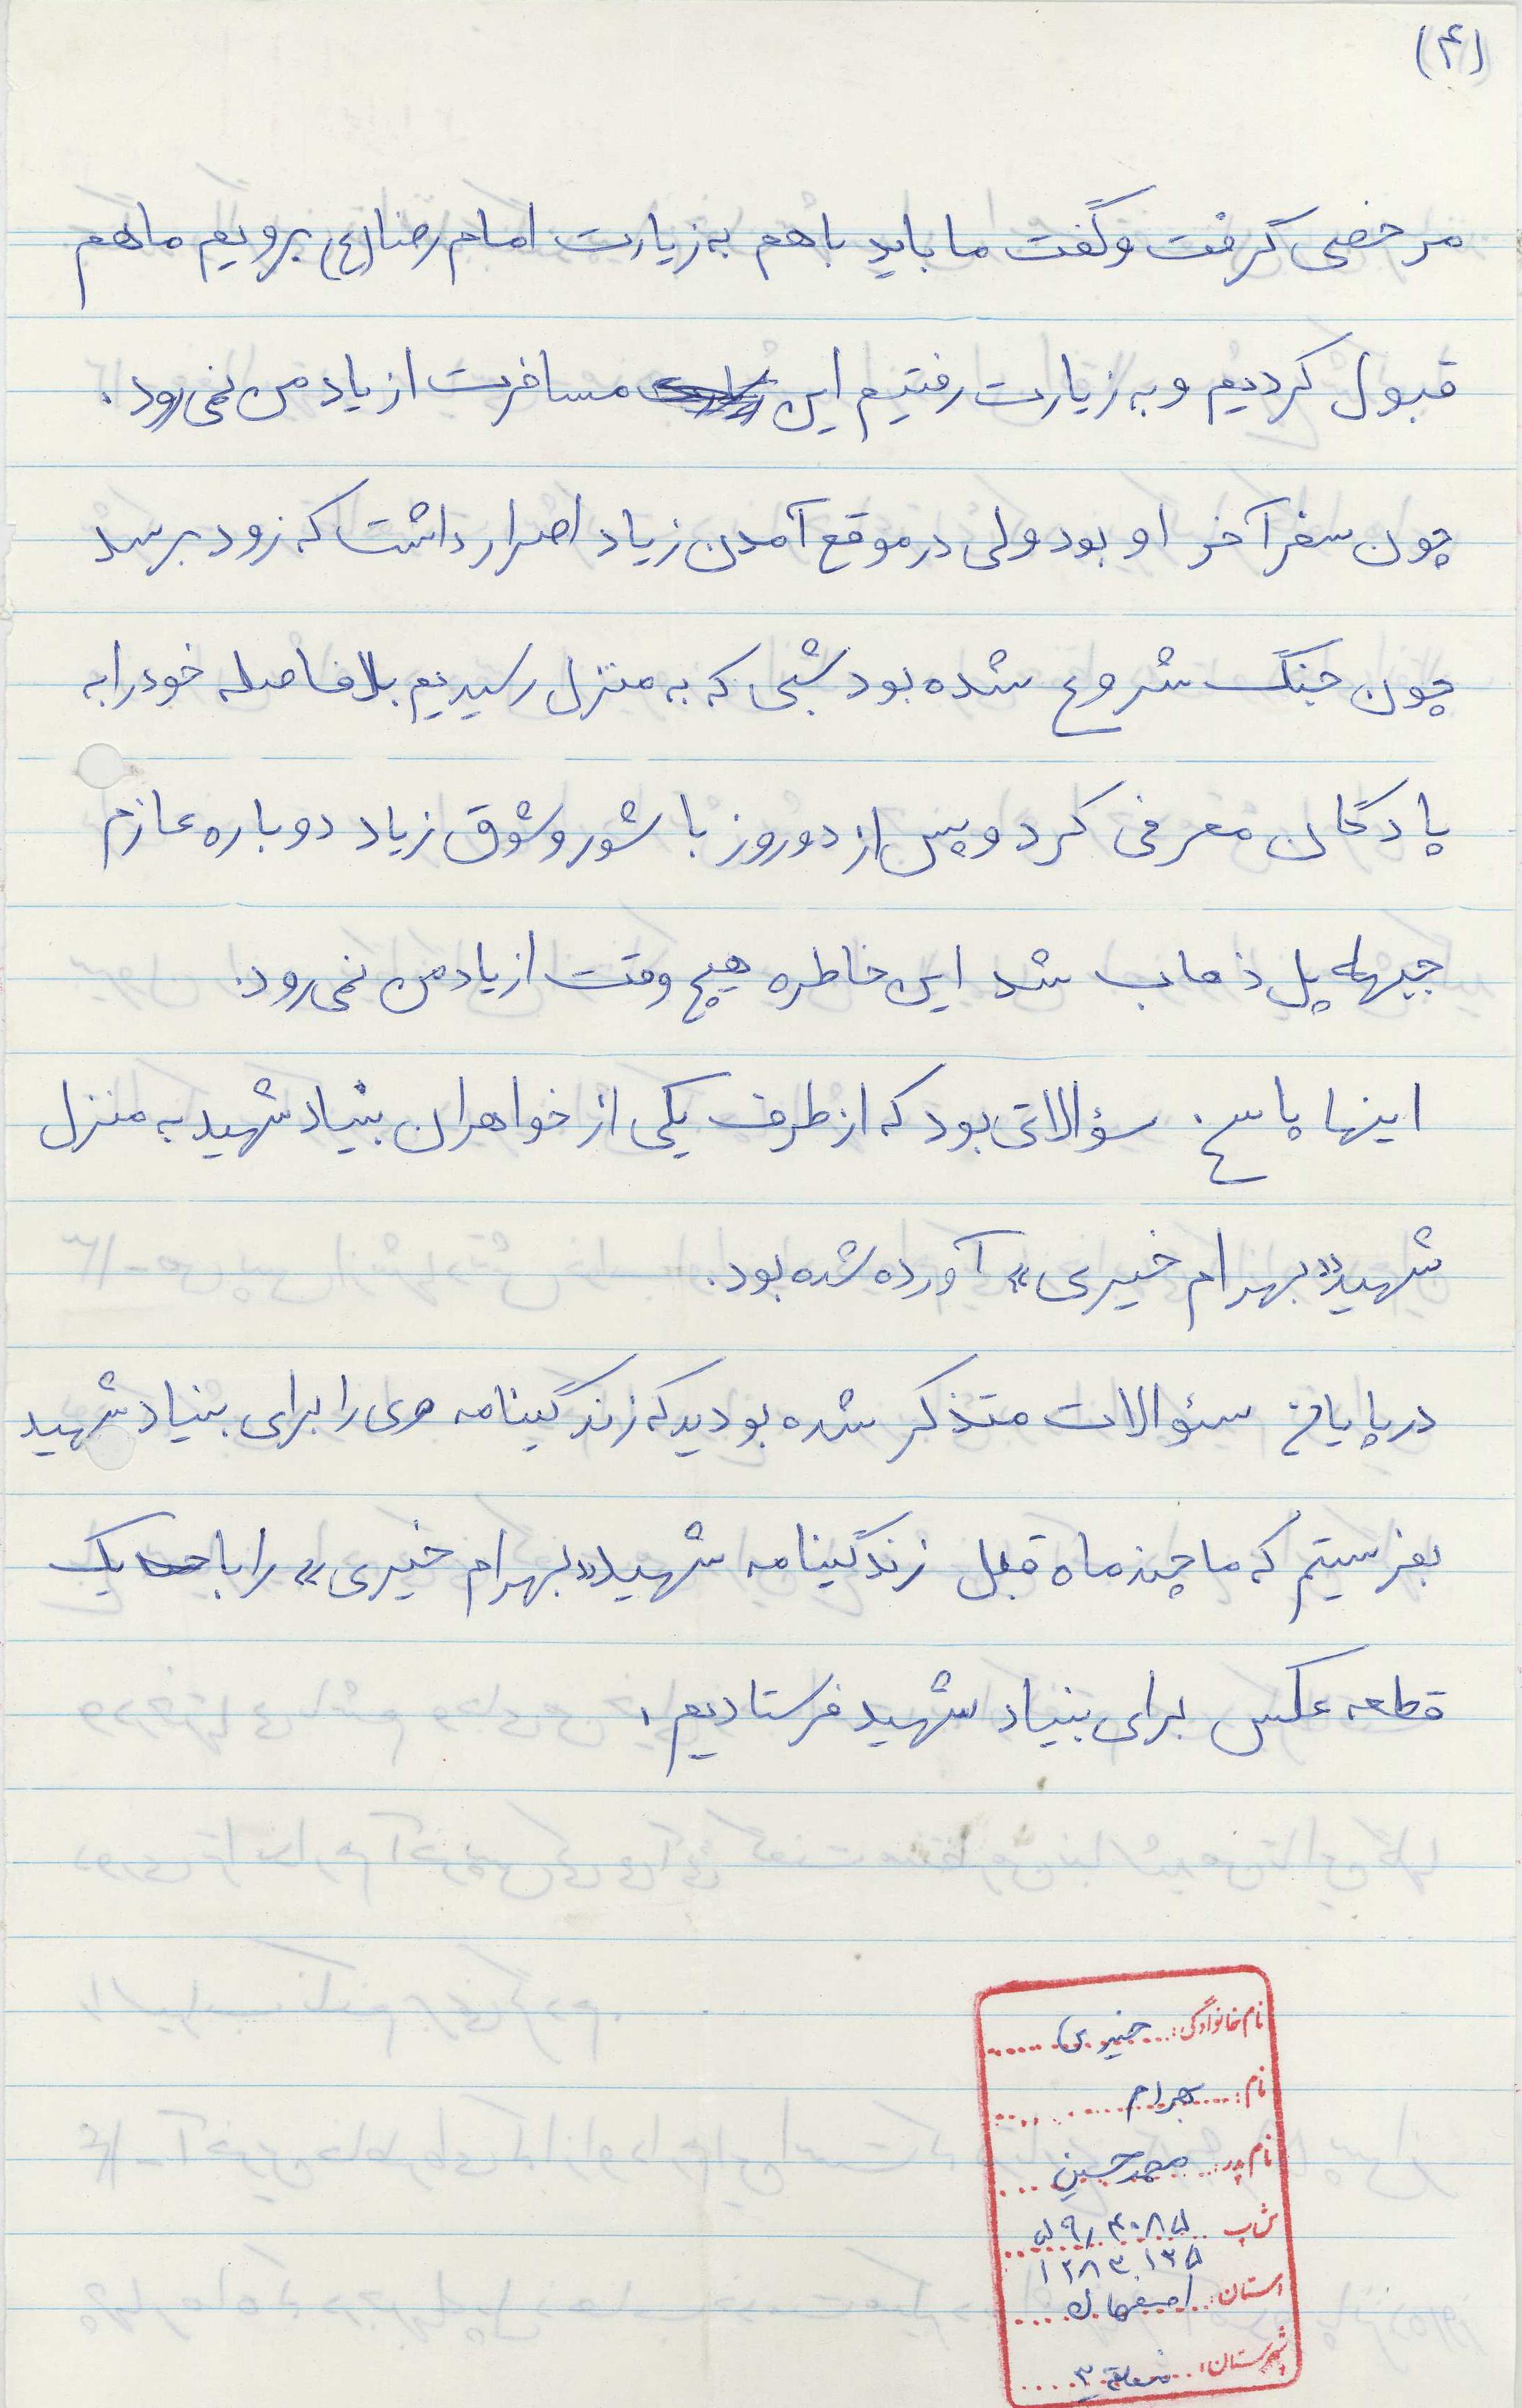 (۴)
مرخصی گرفت و گفت ما باید باهم به زیارت امام رضا (ع) برویم ما هم
قبول کردیم و به زیارت رفتیم این مسافرت از یاد من نمی رود.
چون سفر آخر او بود ولی در موقع آمدن زیاد اصرار داشت که زود برسد
چون جنگ شروع شده بود شبی که به منزل رسیدیم بلافاصله خود را به
پادگان معرفی کرد و پس از دو روز با شور و شوق زیاد دوباره عازم
جبهه پل ذهاب شد این خاطره هیچ وقت از یاد من نمی رود.
اینها پاسخ سؤالاتی بود که از طرف یکی از خواهران بنیاد شهید به منزل
شهید «بهرام خیری» آورده شده بود.
در پایان سئوالات متذکر شده بودید که زندگینامه وی را برای بنیاد شهید
بفرستیم که ما چند ماه قبل زندگینامه شهید «بهرام خیری» را با یک
قطعه عکس برای بنیاد شهید فرستادیم.
نام خانوادگی: خیری
نام: بهرام
نام پدر: محمدحسین
ش پ
استان: اصفهان
شهرستان: منطقه ۳